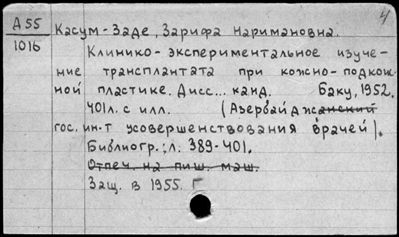 4
А 55 Касум-Заде, Зарифа Наримановна.
1016 Клинико-экспериментальное изуче-
ние трансплантата при кожно-подкож-
ной пластике. Дисс... канд. Баку, 1952.
401л. с илл. (Азербайджанский
гос. ин-т усовершенствования врачей).
Библиогр.: л. 389-401.
Отпеч. на пиш. маш.
Защ. в 1955. Г